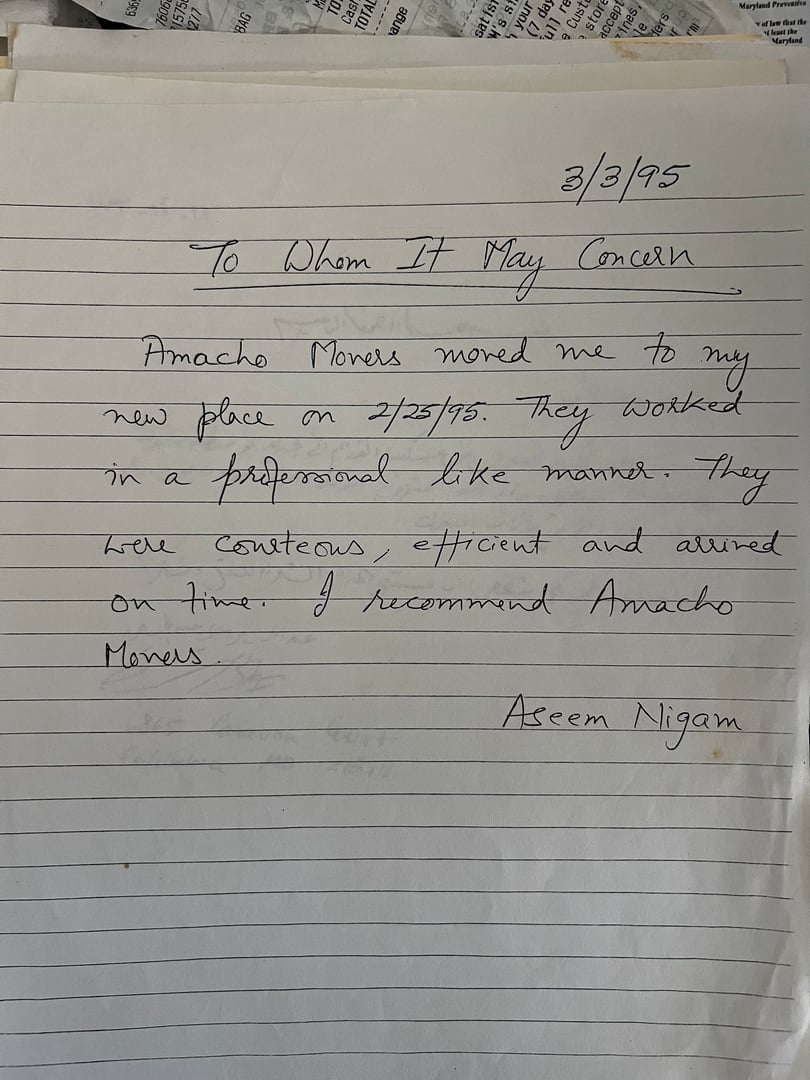 Maryland Preventive
of law that the
least the
Maryland
3/3/95
To Whom It May Concern
Amacho Movers moved me to my
new place on 2/25/95. They worked
in a professional like manner. They
were courteous, efficient and arrived
on time. I recommend Amacho
Movers.
Aseem Nigam